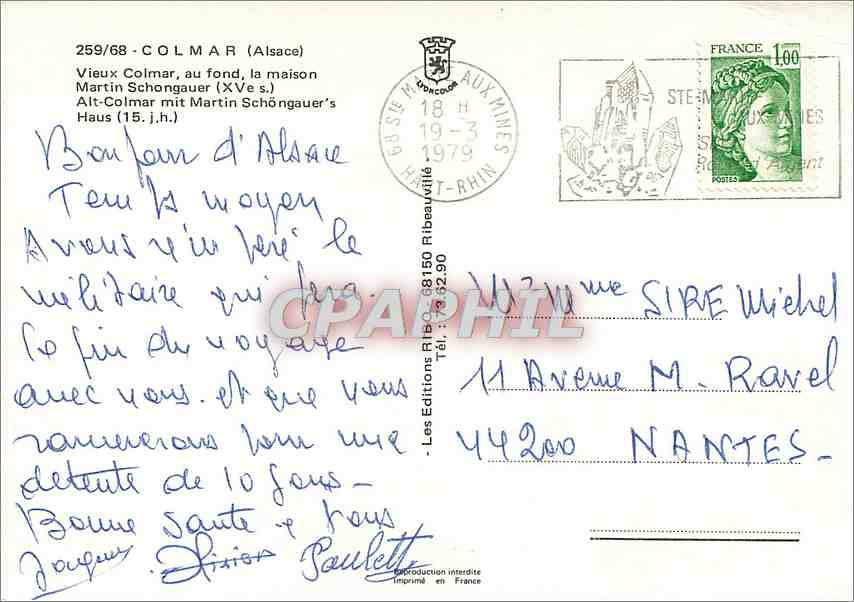 259/68 - COLMAR (Alsace)
Vieux Colmar, au fond, la maison
Martin Schongauer (XVe s.)
Alt-Colmar mit Martin Schöngauer's
Haus (15. j,h.)
LYONCOLOR
68 STE M AUX MINES
18 H
19 - 3
1979
HAUT-RHIN
STE-MA
AUX-MINES
Argent
FRANCE 1,00
POSTES
Bonjour d'Alsace
Temps moyen
Avons récupéré le
militaire qui fera
la fin du voyage
avec nous. et que nous
ramènerons pour une
détente de 10 jours -
Bonne Santé à tous
Jacques Paulette
- Les Editions RIBO - 68150 Ribeauvillé
Tél. : 73.62.90
CPAPHIL
Mr Mme SIRE Michel
11 Avenue M. Ravel
44200 NANTES -
Reproduction interdite
Imprimé en France